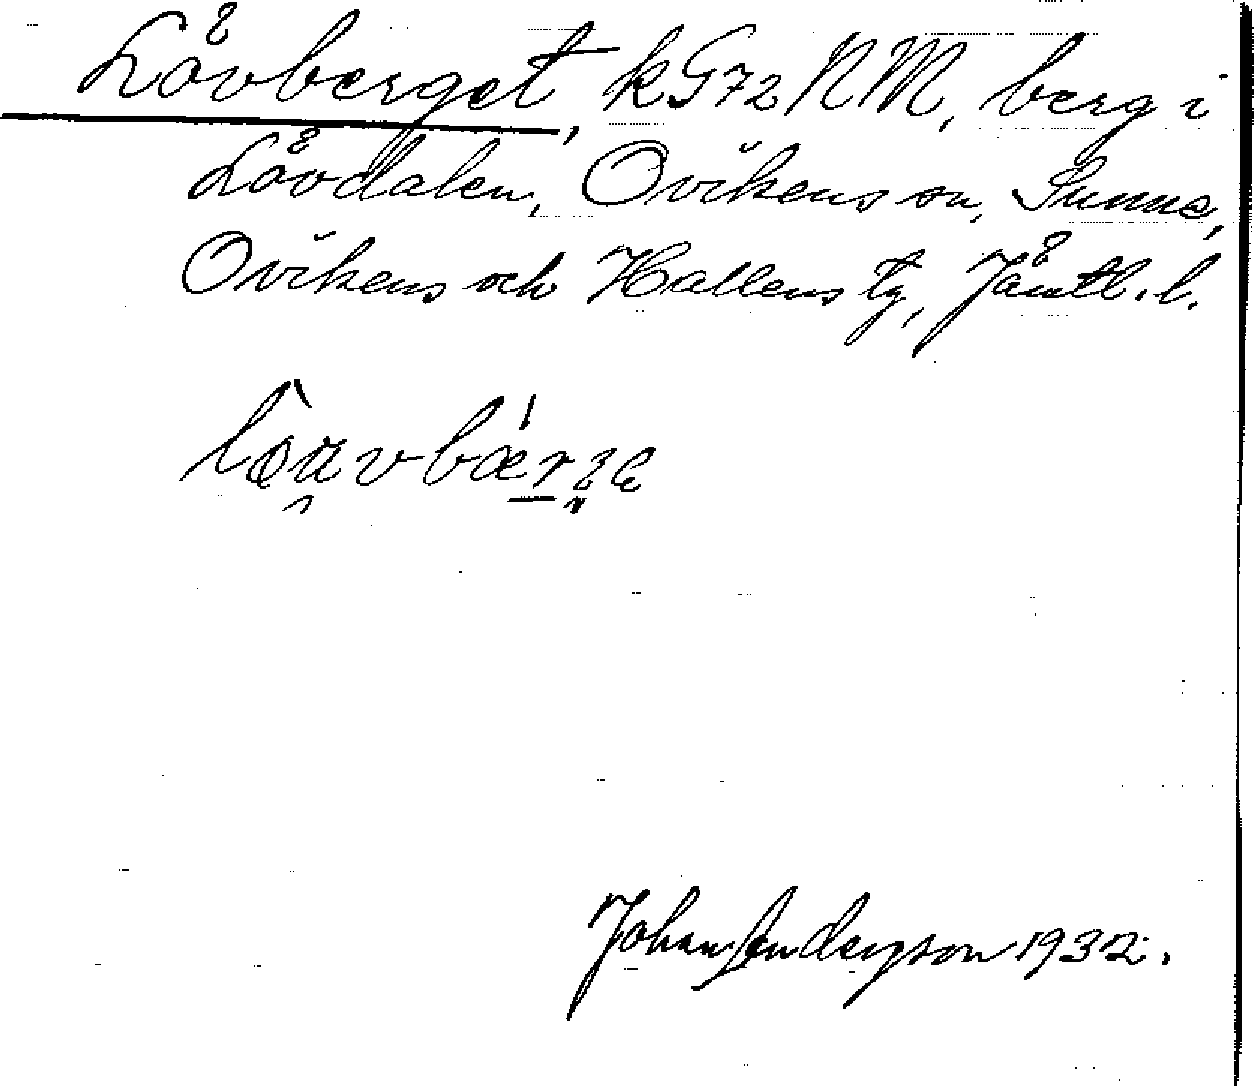 Lövberget, kG72NM, berg i
Lövdalen, Ovikens sn, Sunne,
Ovikens och Hallens tg, Jämtl. l.
Johan Andersson 1932.